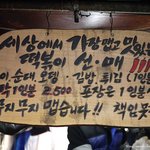 세상에서 가장맵고 맛있는
떡볶이 선·매 !!!
이 순대 오뎅 · 김밥 튀김 (1인
각1인분 2500 포장은 1인분
지무지 맵습니다!! 책임못